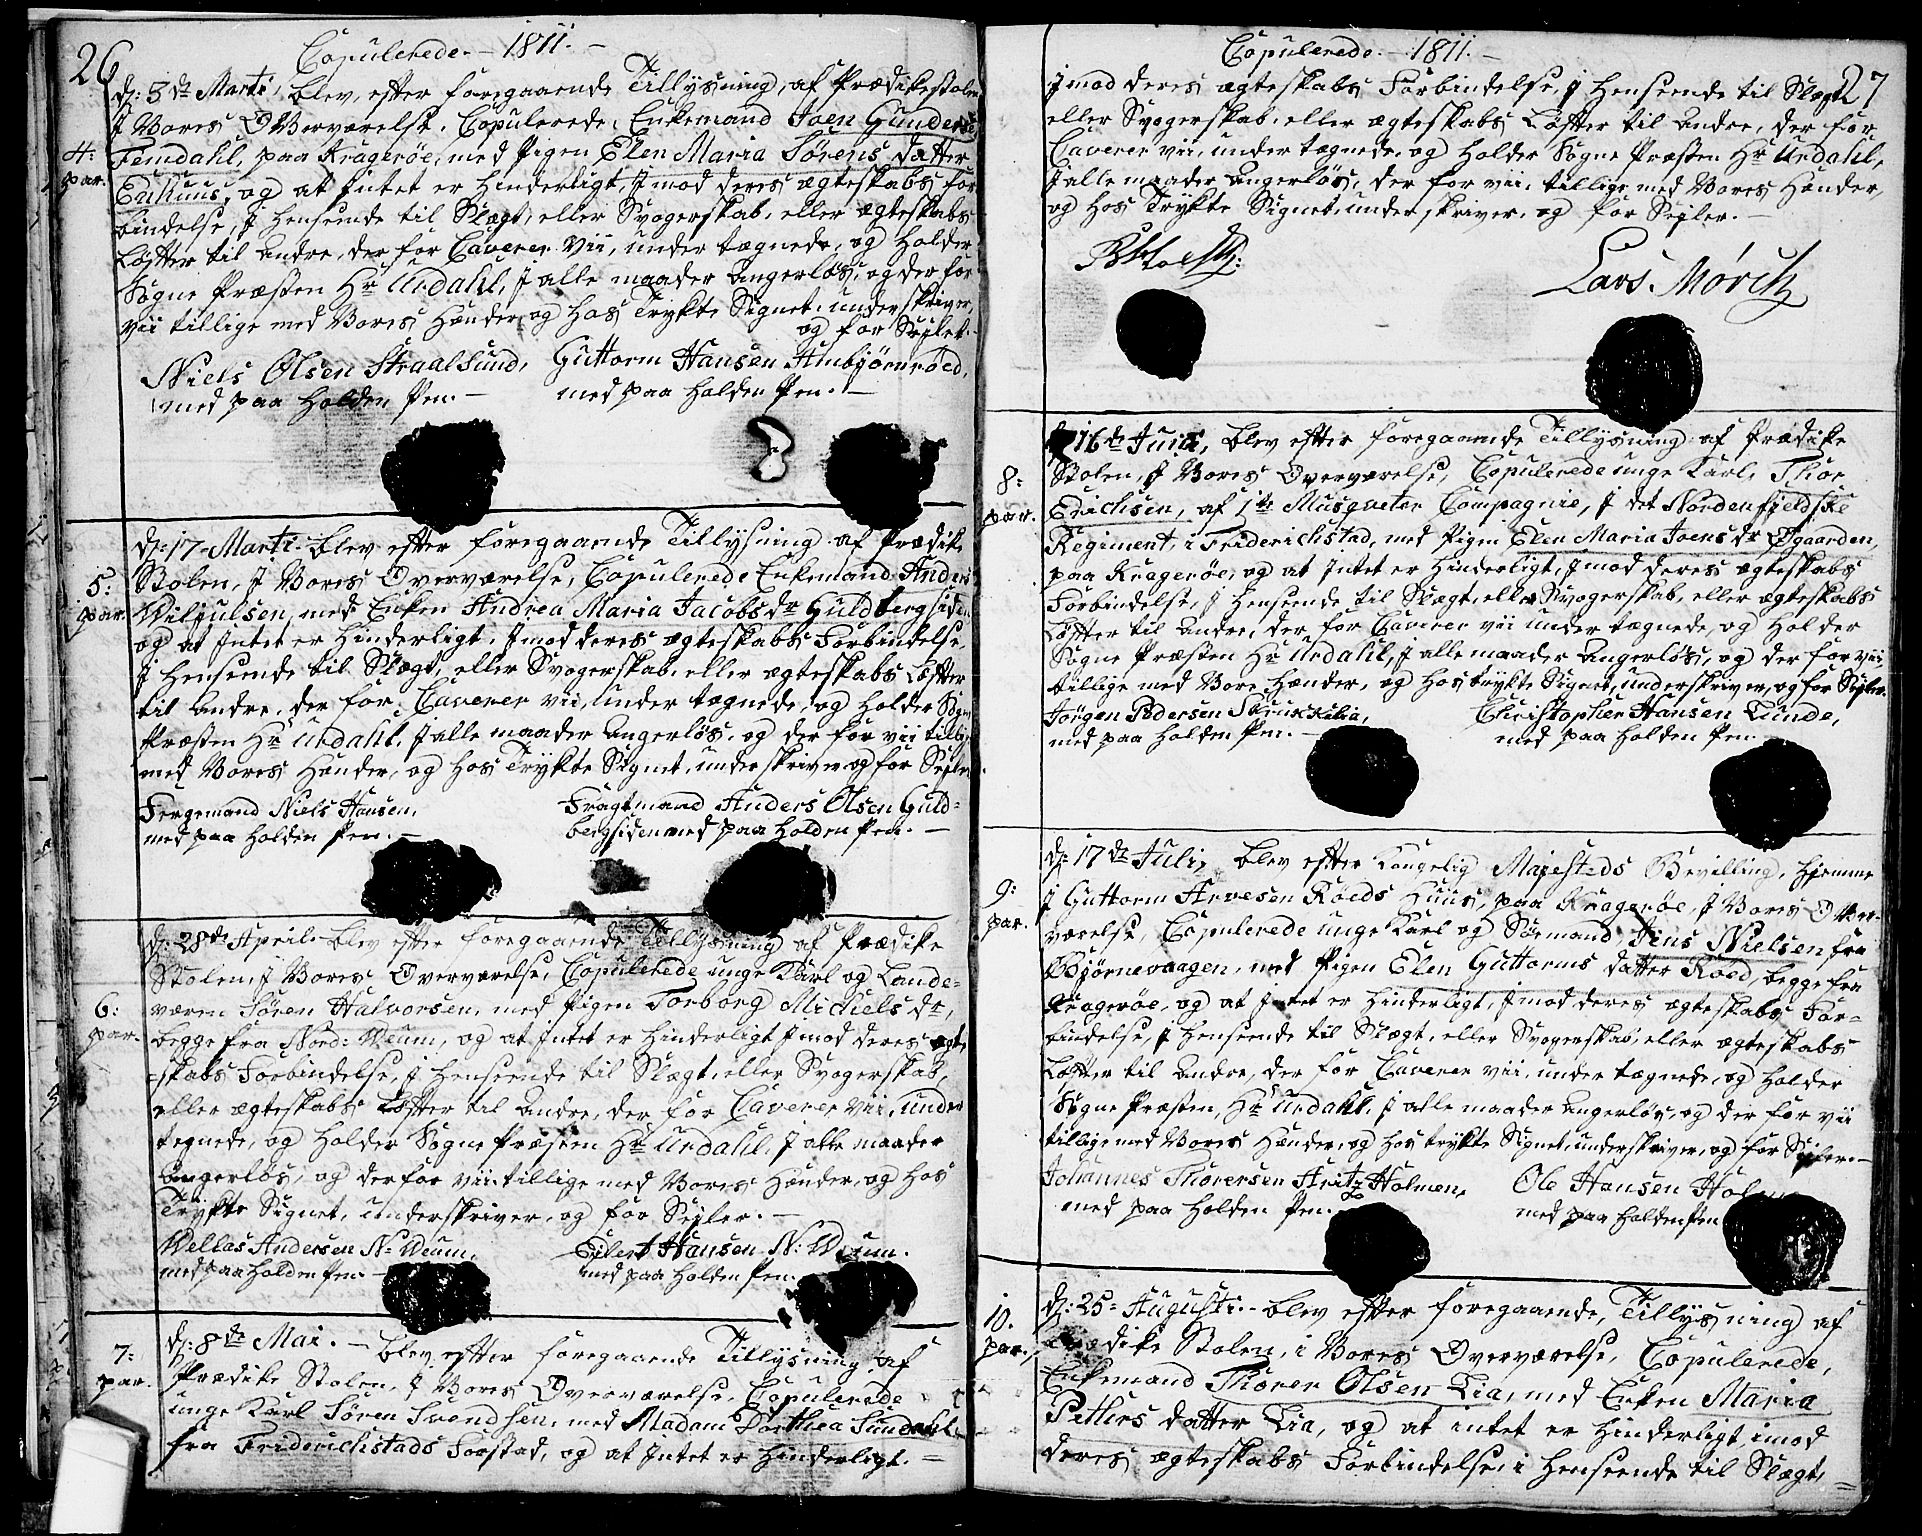 26
Copulerede. – 1811. –
d: 3de Marti, blev, efter foregaaende Tillysning, af Prædikestolen
J Vores Overværelse, Copulerede, Enkemand Joen Gunderse
4:
par.
Femdahl, paa Kragerøe, med Pigen Elen Maria Sørens datter
Enhuus, og at Jntet er Hinderligt, J mod deres ægteskabs for
bindelse, J Henseende til Slægt, eller Svogerskab, eller ægteskabs
Løfter til andre, der for Caverer vii, under tægnede, og holder
Sogne Præsten Hr Urdahl, J alle maader angerløs, og der for
vii tillige med Vores Hænder, og hos Trykte Signet, under skriver,
og for Sejlet.
Niels Olsen Straalsund, Guttorm Hansen Ambjørnrøed,
med paa holden Pen. – med paa holden Pen. –
d: 17– Marti. blev efter foregaaende Tillysning af Prædike
Stolen, J Vores Overværelse, Copulerede Enkemand Anders
5:
par.
Wiljulsen, med Enken Andrea Maria Jacobsdr Guldbergsiden
og at Jntet er Hinderligt, J mod deres ægteskabs Forbindelse,
J Henseende til Slægt, eller Svogerskab, eller ægteskabs Løfter
til andre, der for Caverer vii, under tægnede, og holder Sogne
Præsten Hr Urdahl, J alle maader angerløs, og der for vii tillig
med Vores Hænder, og hos Trykte Signet, under skriver og for Sejler
Fergemand Niels Hansen, Fragtmand Anders Olsen Guld=
med paa holden Pen. – bergsiden med paa holden Pen. –
d: 28de April. blev efter foregaaende Tillysning af Prædike
Stolen, J Vores Overværelse, Copulerede unge Karl og Lande=
6:
par.
væren Søren Halvorsen, med Pigen Torborg Michels dr,
begge fra Nord: Weum, og at Jntet er Hinderligt J mod deres ægte
=skabs Forbindelse, J Henseende til Slægt, eller Svogerskab,
eller ægteskabs Løfter til andre, der for Caverer vii, under
tegnede, og holder Sogne Præsten Hr Urdahl, J alle maader
angerløs, og der for vii tillige med Vores Hænder, og hos
Trykte Signet, under skriver, og for Sejler. –
Wellas Andersen N: Weum, Eilert Hansen N: Weum.
med paa holden Pen. – med paa holden Pen.
7:
par.
d: 8de Mai. – blev efter foregaaende Tillysning af
Prædike Stolen, J Vores Overværelse, Copulerede
unge Karl Søren Svendsen, med Madam Dorthea Sundahl
fra Friderichstads Forstad, og at Jntet er Hinderligt. –
Copulerede. – 1811. –
27
J mod deres ægteskabs Forbindelse, J Henseende til Slægt
eller Svogerskab, eller ægteskabs Løfter til andre, der for
Caverer vii, under tegnede, og holder Sogne Præsten Hr Urdahl,
J alle maader angerløs, der for vii, tillige med Vores Hænder,
og hos Trykte Signet, under skriver, og for Sejler. –
Lars Møritz
d: 16de Juni, blev efter foregaaende Tillysning af Prædike
8:
par.
Stolen, J Vores Overværelse, Copulerede unge Karl, Thor
Erichsen, af 1te Musqveter Compagnie, J det Nordenfjeldske
Regiment, i Friderichstad, med Pigen Elen Maria Joens dr Øgaarden,
paa Kragerøe, og at Jntet er Hinderligt, J mod deres ægteskabs
Forbindelse, J Henseende til Slægt, eller Svogerskab, eller ægteskabs
Løfter til andre, der for Caverer vii under tægnede, og holder
Sogne Præsten Hr Urdahl, J alle maader angerløs, og der for vii,
tillige med Vore Hænder, og hos trykte Signet, under skriver, og for Sejler.
Jørgen Pedersen Skrukkelia, Christopher Hansen Lunde,
med paa holden Pen. – med paa holden Pen.
d: 17de Juli, blev efter Kongelig Majestæds Bevilling, Hjemme
9:
par.
J Guttorm Arvesen Røeds Huus, paa Kragerøe, J Vores Over=
værelse, Copulerede unge Karl og Sømand, Jens Nielsen fra
Bjørnevaagen, med Pigen Elen Guttorms datter Røed, begge fra
Kragerøe, og at Jntet er Hinderligt, J mod deres ægteskabs For=
bindelse, J Henseende til Slægt, eller Svogerskab, eller ægteskabs
Løfter til andre, der for Caverer vii, under tægnede, og holder
Sogne Præsten, Hr Urdahl, J alle maader angerløs, og der for vii
tillige med Vores Hænder, og hos trykte Signet, under skriver, og for Sejler. –
Johannes Thorersen Fritz Holmen, Ole Hansen Holm
med paa holden Pen. med paa holden Pen
10.
par.
d: 25– Augusti. – blev efter foregaaende, Tillysning af
Prædike Stolen, i Vores Overværelse, Copulerede,
Enkemand Thorer Olsen Lia, med Enken Maria
Petters datter Lia, og at intet er Hinderligt, imod
deres ægteskabs Forbindelse, i Henseende til Slægt, =